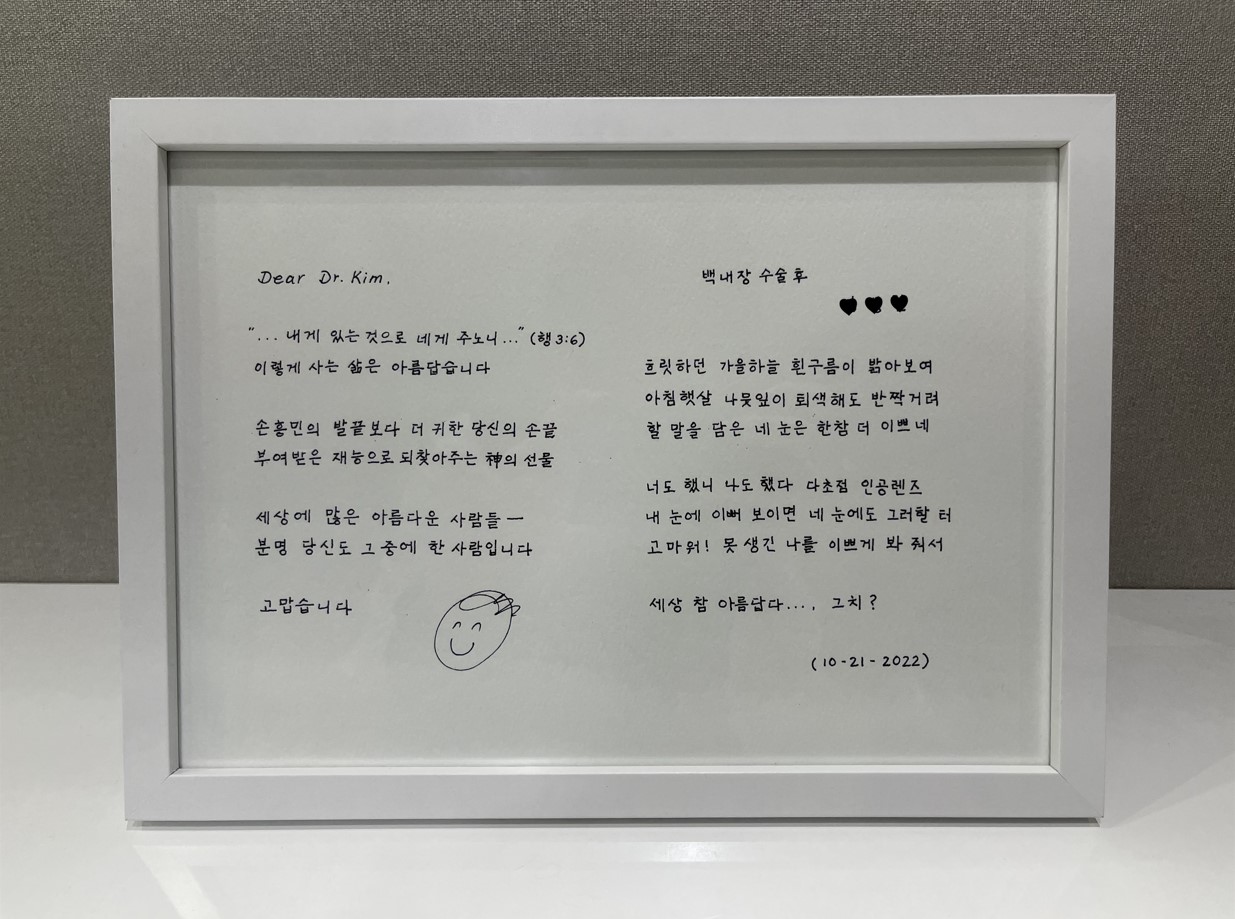 Dear Dr. Kim,
"... 내게 있는 것으로 네게 주노니..." (행 3:6)
이렇게 사는 삶은 아름답습니다
손흥민의 발끝보다 더 귀한 당신의 손끝
부여받은 재능으로 되찾아주는 神의 선물
세상에 많은 아름다운 사람들 —
분명 당신도 그 중에 한 사람입니다
고맙습니다
백내장 수술 후
♥♥♥
흐릿하던 가을하늘 흰구름이 밝아보여
아침햇살 나뭇잎이 퇴색해도 반짝거려
할 말을 담은 네 눈은 한참 더 이쁘네
너도 했니 나도 했다 다초점 인공렌즈
내 눈에 이뻐 보이면 네 눈에도 그러할 터
고마워! 못 생긴 나를 이쁘게 봐 줘서
세상 참 아름답다..., 그치?
(10-21-2022)